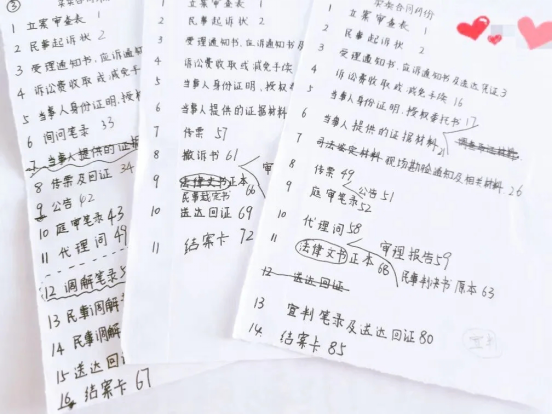 ③
1 立案审查表 1
2 民事起诉状 2
3 受理通知书、应诉通知书及
4 诉讼费收取或减免手续
5 当事人身份证明、授权
6 询问笔录 33
7 当事人提供的证据
8 传票及回证 34
9 公告 42
10 庭审笔录 43
11 代理词 49
12 调解笔录
13 民事调解
14 民事调解
15 送达回证
16 结案卡 67
买卖合同纠纷
1 立案审查表 1
2 民事起诉状 2
3 受理通知书、应诉通知书
4 诉讼费收取或减免手续
5 当事人身份证明、授权
6 当事人提供的证据材料
7 传票 57
8 撤诉书 61
9 法律文书正本 66
民事裁定书
10 送达回证 69
11 结案卡 72
买卖合同纠纷
1 立案审查表 1
2 民事起诉状 2
3 受理通知书、应诉通知书及送达凭证 3
4 诉讼费收取或减免手续 16
5 当事人身份证明、授权委托书 17
6 当事人提供的证据材料 21
7 司法鉴定材料 现场勘验通知及相关材料 26
8 传票 49
公告 51
9 庭审笔录 52
10 代理词 58
审理报告 59
11 法律文书正本 68
民事判决书 原本 63
12 送达回证
13 宣判笔录及送达回证 80
14 结案卡 85